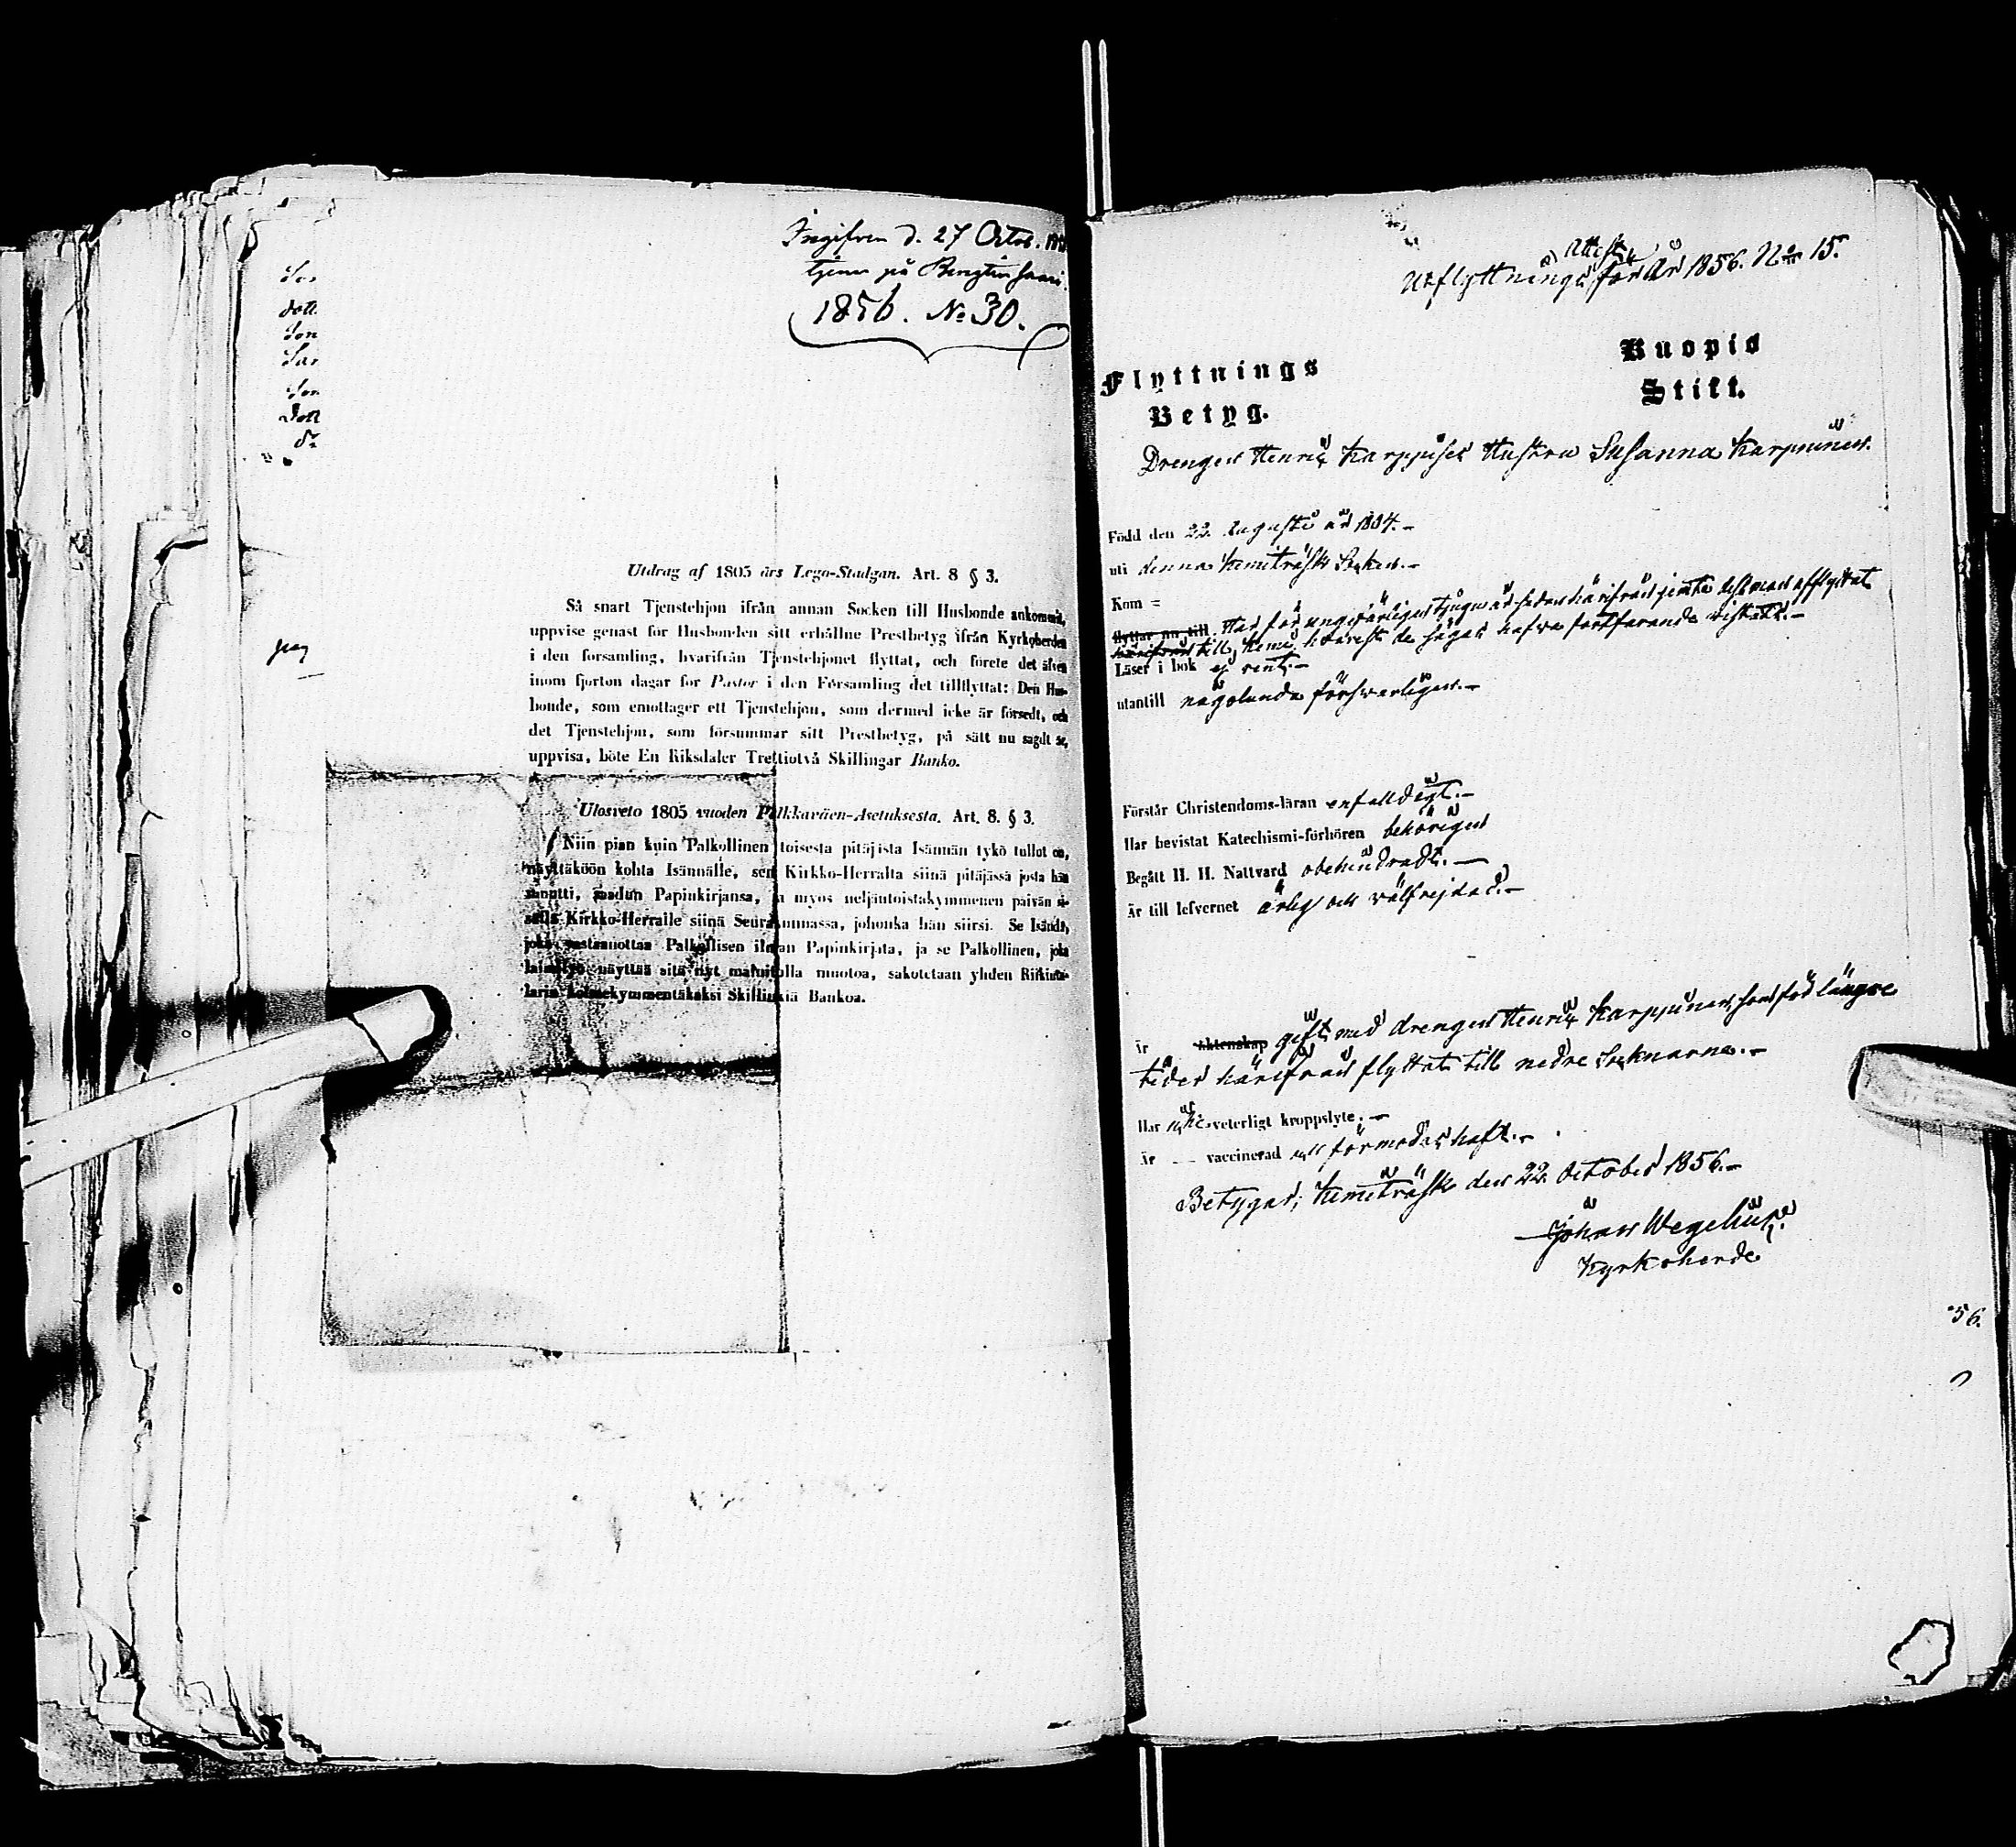 Ingifven d. 27 Octob.
tjener på
1856. No 30.
Son
dott.
Son
Son
Dott
Utdrag af 1805 års Lego-Stadgan. Art. 8 § 3.
Så snart Tjenstehjon ifrån annan Socken till Husbonde ankommit,
uppvise genast för Husbonden sitt erhållne Prestbetyg ifrån Kyrkoherden
i den församling, hvarifrån Tjenstehjonet flyttat, och förete det äfven
inom fjorton dagar för Pastor i den Församling det tillflyttat: Den Hus-
bonde, som emottager ett Tjenstehjon, som dermed icke är försedt, och
det Tjenstehjon, som försummar sitt Prestbetyg, på sätt nu sagdt är,
uppvisa, böte En Riksdaler Trettiotvå Skillingar Banko.
Ulosveto 1805 vuoden Palkkaväen-Asetuksesta. Art. 8. § 3.
Niin pian kuin Palkollinen toisesta pitäjista Isännän tykö tullot on,
näyttäköön kohta Isännälle, sen Kirkko-Herralta siinä pitäjässä josta hän
muutti, saadun Papinkirjansa, ja myos neljäntoistakymmenen päivän si-
sällä Kirkko-Herralle siinä Seurakunnassa, johonka hän siirsi. Se Isändä,
joka vastaanottaa Palkollisen ilman Papinkirjata, ja se Palkollinen, joka
laimilyö näyttää sitä nyt mainitulla muotoa, sakotetaan yhden Riikinta-
larin kolmekymmentäkaksi Skillinkiä Bankoa.
Utflyttnings Attest för År 1856. No 15.
Kuopio
Stift.
Flyttnings
Betyg.
Drengen Henric Karppises Hustru Susanna Karpuinen.
Född den 22 Augusti år 1804.-
uti denna Kemiträsk Socken.-
Kom =
flyttar nu till. Har för ungefärligen tjugu år sedan härifrån jemte dess man afflyttat
härifrån till Kemi, hvarest de sägas hafva fortfarande vistats.-
Läser i bok ej rent.-
utantill någolunda försvarligen.-
Förstår Christendoms-läran enfalldigt.-
Har bevistat Katechismi-förhören behörigen
Begått H. H. Nattvard obehindradt.-
Är till lefvernet ärlig och välfrejdad.-
Är äktenskap gift med drengen Henric Karppunen, som för längre
tider härifrån flyttat till nedre Socknarna.-
Har icke veterligt kroppslyte.-
Är - - vaccinerad förmodas haft.-
Betygar; Kemiträsk den 22 October 1856.-
Johan Wegelius.
Kyrkoherde.
56.